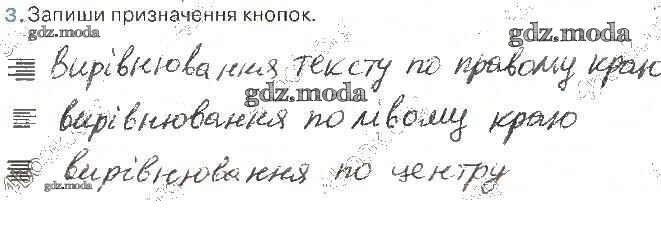 3. Запиши призначення кнопок.
gdz.moda
gdz.moda
Вирівнювання тексту по правому краю
gdz.moda
вирівнювання по лівому краю
вирівнювання по центру
gdz.moda